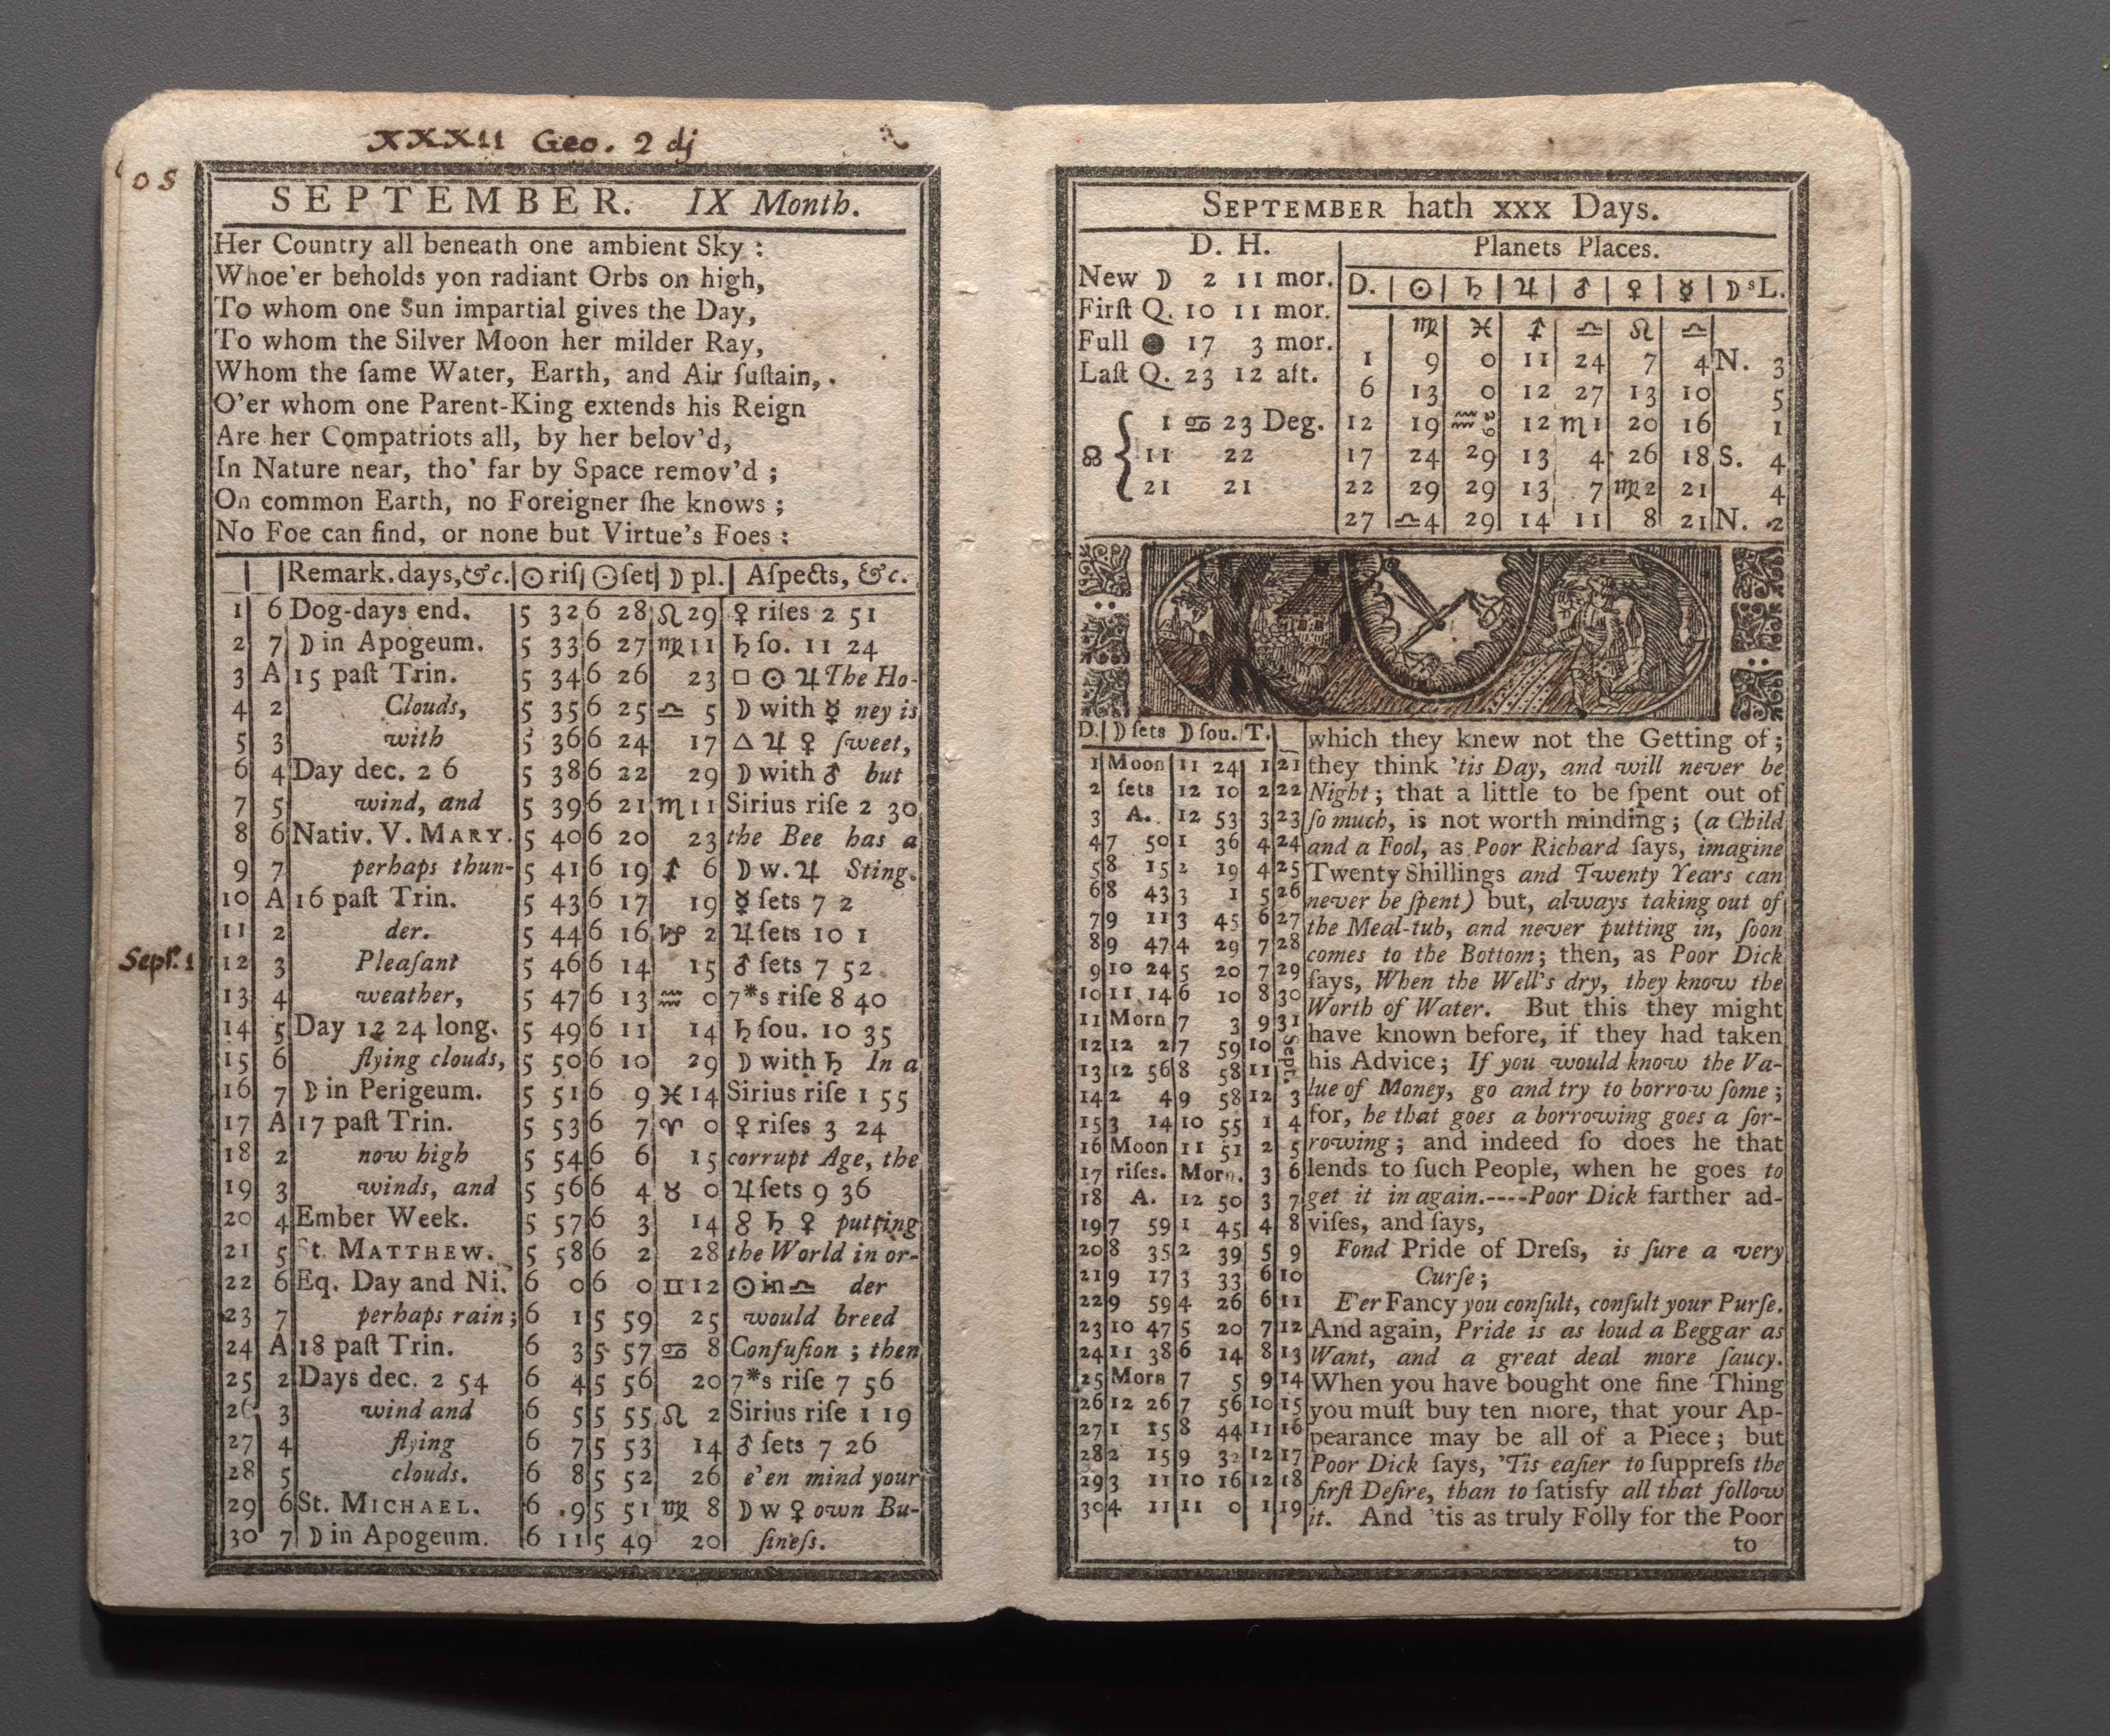 XXXII Geo. 2 dj
OS
SEPTEMBER. IX Month.
Her Country all beneath one ambient Sky :
Whoe'er beholds yon radiant Orbs on high,
To whom one Sun impartial gives the Day,
To whom the Silver Moon her milder Ray,
Whom the ſame Water, Earth, and Air ſuſtain,
O'er whom one Parent-King extends his Reign
Are her Compatriots all, by her belov'd,
In Nature near, tho' far by Space remov'd ;
On common Earth, no Foreigner ſhe knows ;
No Foe can find, or none but Virtue's Foes :
Remark. days, &c. ☉ riſ ☉ ſet ☽ pl. Aſpects, &c.
1 6 Dog-days end. 5 32 6 28 ♌ 29 ♀ riſes 2 51
2 7 ☽ in Apogeum. 5 33 6 27 ♍ 11 ♄ ſo. 11 24
3 A 15 paſt Trin. 5 34 6 26 23 □ ☉ ♃ The Ho-
4 2 Clouds, 5 35 6 25 ♎ 5 ☽ with ☿ ney is
5 3 with 5 36 6 24 17 △ ♃ ♀ ſweet,
6 4 Day dec. 2 6 5 38 6 22 29 ☽ with ♂ but
7 5 wind, and 5 39 6 21 ♏ 11 Sirius riſe 2 30
8 6 Nativ. V. MARY. 5 40 6 20 23 the Bee has a
9 7 perhaps thun- 5 41 6 19 ♐ 6 ☽ w. ♃ Sting.
10 A 16 paſt Trin. 5 43 6 17 19 ☿ ſets 7 2
11 2 der. 5 44 6 16 ♑ 2 ♃ ſets 10 1
Sepr. 1 12 3 Pleaſant 5 46 6 14 15 ♂ ſets 7 52
13 4 weather, 5 47 6 13 ♒ 0 7*s riſe 8 40
14 5 Day 12 24 long. 5 49 6 11 14 ♄ ſou. 10 35
15 6 flying clouds, 5 50 6 10 29 ☽ with ♄ In a
16 7 ☽ in Perigeum. 5 51 6 9 ♓ 14 Sirius riſe 1 55
17 A 17 paſt Trin. 5 53 6 7 ♈ 0 ♀ riſes 3 24
18 2 now high 5 54 6 6 15 corrupt Age, the
19 3 winds, and 5 56 6 4 ♉ 0 ♃ ſets 9 36
20 4 Ember Week. 5 57 6 3 14 ☍ ♄ ♀ putting
21 5 St. MATTHEW. 5 58 6 2 28 the World in or-
22 6 Eq. Day and Ni. 6 0 6 0 ♊ 12 ☉ in ♎ der
23 7 perhaps rain; 6 1 5 59 25 would breed
24 A 18 paſt Trin. 6 3 5 57 ♋ 8 Confuſion ; then
25 2 Days dec. 2 54 6 4 5 56 20 7*s riſe 7 56
26 3 wind and 6 5 5 55 ♌ 2 Sirius riſe 1 19
27 4 flying 6 7 5 53 14 ♂ ſets 7 26
28 5 clouds. 6 8 5 52 26 e'en mind your
29 6 St. MICHAEL. 6 9 5 51 ♍ 8 ☽ w ♀ own Bu-
30 7 ☽ in Apogeum. 6 11 5 49 20 ſineſs.
SEPTEMBER hath XXX Days.
D. H.
New ☽ 2 11 mor.
Firſt Q. 10 11 mor.
Full ● 17 3 mor.
Laſt Q. 23 12 aft.
☊ { 1 ♋ 23 Deg.
11 22
21 21
Planets Places.
D. ☉ ♄ ♃ ♂ ♀ ☿ ☽sL.
♍ ♓ ♐ ♎ ♌ ♎
1 9 0 11 24 7 4 N. 3
6 13 0 12 27 13 10 5
12 19 ♒ 29 12 ♏ 1 20 16 1
17 24 29 13 4 26 18 S. 4
22 29 29 13 7 ♍ 2 21 4
27 ♎ 4 29 14 11 8 21 N. 2
D. ☽ ſets ☽ ſou. T.
1 Moon 11 24 1 21
2 ſets 12 10 2 22
3 A. 12 53 3 23
4 7 50 1 36 4 24
5 8 15 2 19 4 25
6 8 43 3 1 5 26
7 9 11 3 45 6 27
8 9 47 4 29 7 28
9 10 24 5 20 7 29
10 11 14 6 10 8 30
11 Morn 7 3 9 31
12 12 2 7 59 10 Sept.
13 12 56 8 58 11
14 2 4 9 58 12 3
15 3 14 10 55 1 4
16 Moon 11 51 2 5
17 riſes. Morn. 3 6
18 A. 12 50 3 7
19 7 59 1 45 4 8
20 8 35 2 39 5 9
21 9 17 3 33 6 10
22 9 59 4 26 6 11
23 10 47 5 20 7 12
24 11 38 6 14 8 13
25 Morn 7 5 9 14
26 12 26 7 56 10 15
27 1 15 8 44 11 16
28 2 15 9 32 12 17
29 3 11 10 16 12 18
30 4 11 11 0 1 19
which they knew not the Getting of;
they think 'tis Day, and will never be
Night; that a little to be ſpent out of
ſo much, is not worth minding; (a Child
and a Fool, as Poor Richard ſays, imagine
Twenty Shillings and Twenty Years can
never be ſpent) but, always taking out of
the Meal-tub, and never putting in, ſoon
comes to the Bottom; then, as Poor Dick
ſays, When the Well's dry, they know the
Worth of Water. But this they might
have known before, if they had taken
his Advice; If you would know the Va-
lue of Money, go and try to borrow ſome;
for, he that goes a borrowing goes a ſor-
rowing; and indeed ſo does he that
lends to ſuch People, when he goes to
get it in again.----Poor Dick farther ad-
viſes, and ſays,
Fond Pride of Dreſs, is ſure a very
Curſe;
E'er Fancy you conſult, conſult your Purſe.
And again, Pride is as loud a Beggar as
Want, and a great deal more ſaucy.
When you have bought one fine Thing
you muſt buy ten more, that your Ap-
pearance may be all of a Piece; but
Poor Dick ſays, 'Tis eaſier to ſuppreſs the
firſt Deſire, than to ſatisfy all that follow
it. And 'tis as truly Folly for the Poor
to